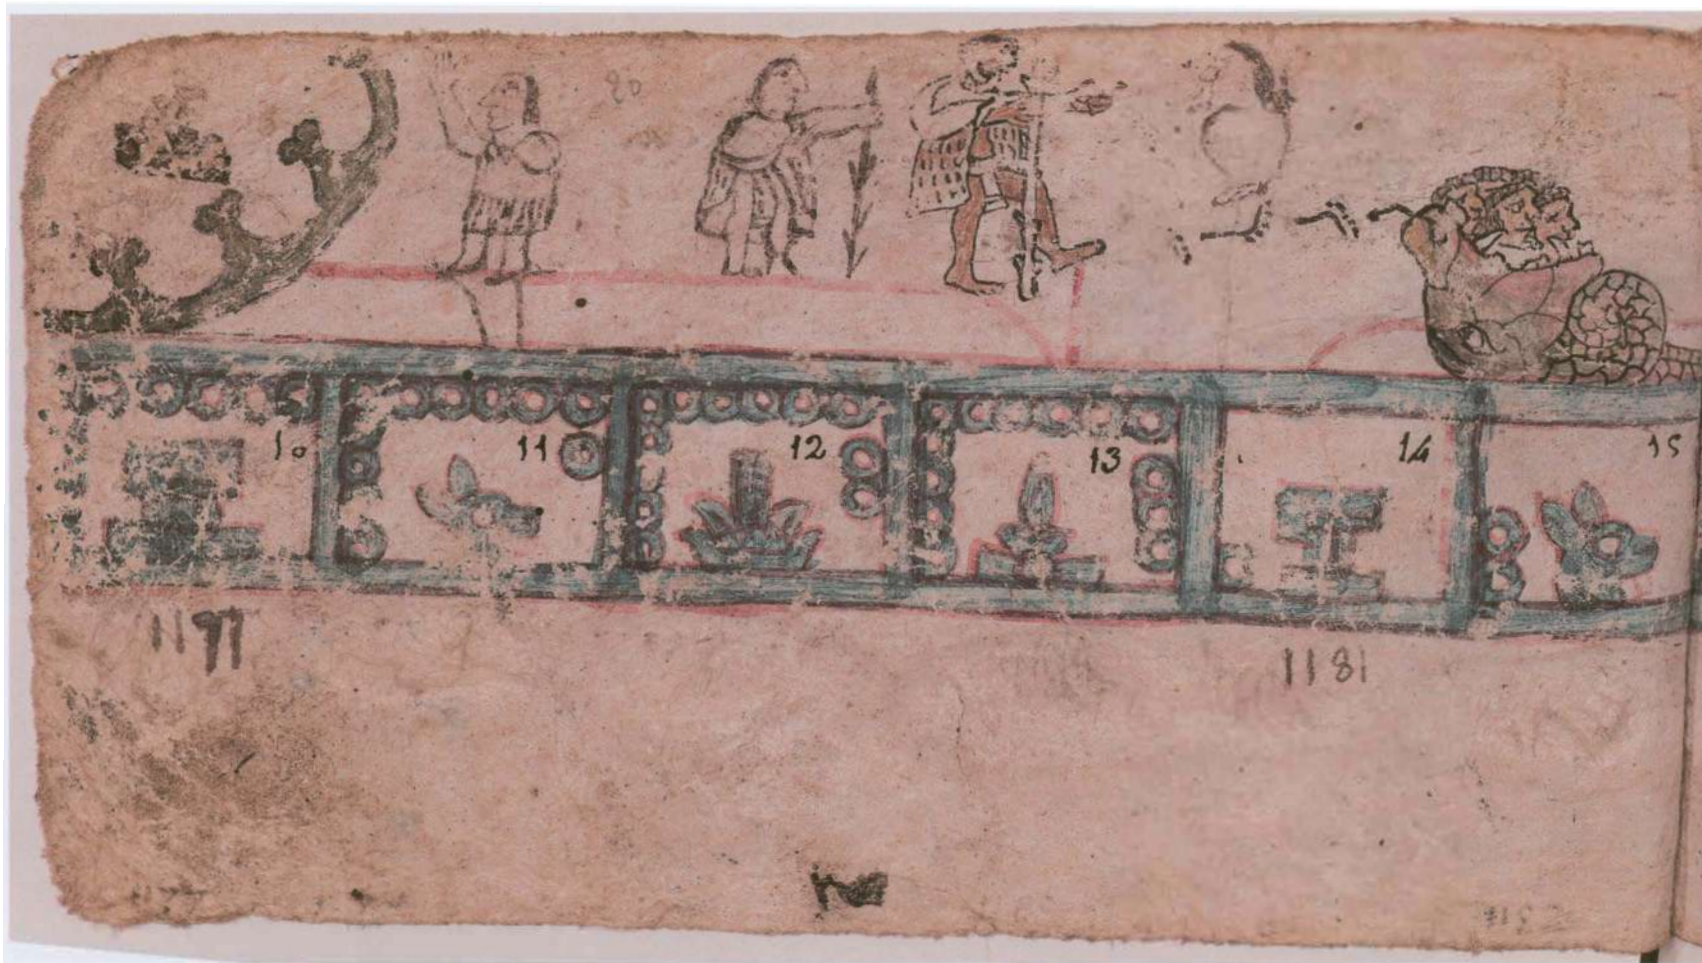 10 11 12 13 14 15
1177 1181